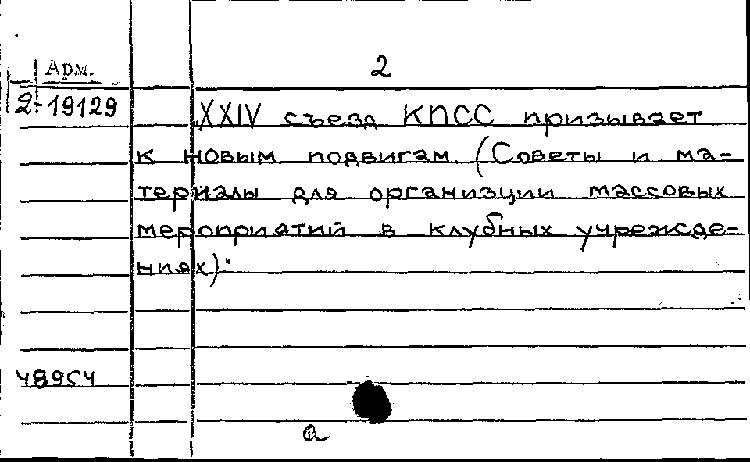 2
Арм.
2-19129
XXIV съезд КПСС призывает
к новым подвигам. (Советы и ма-
териалы для организции массовых
мероприятий в клубных учрежде-
ниях).
48954
а